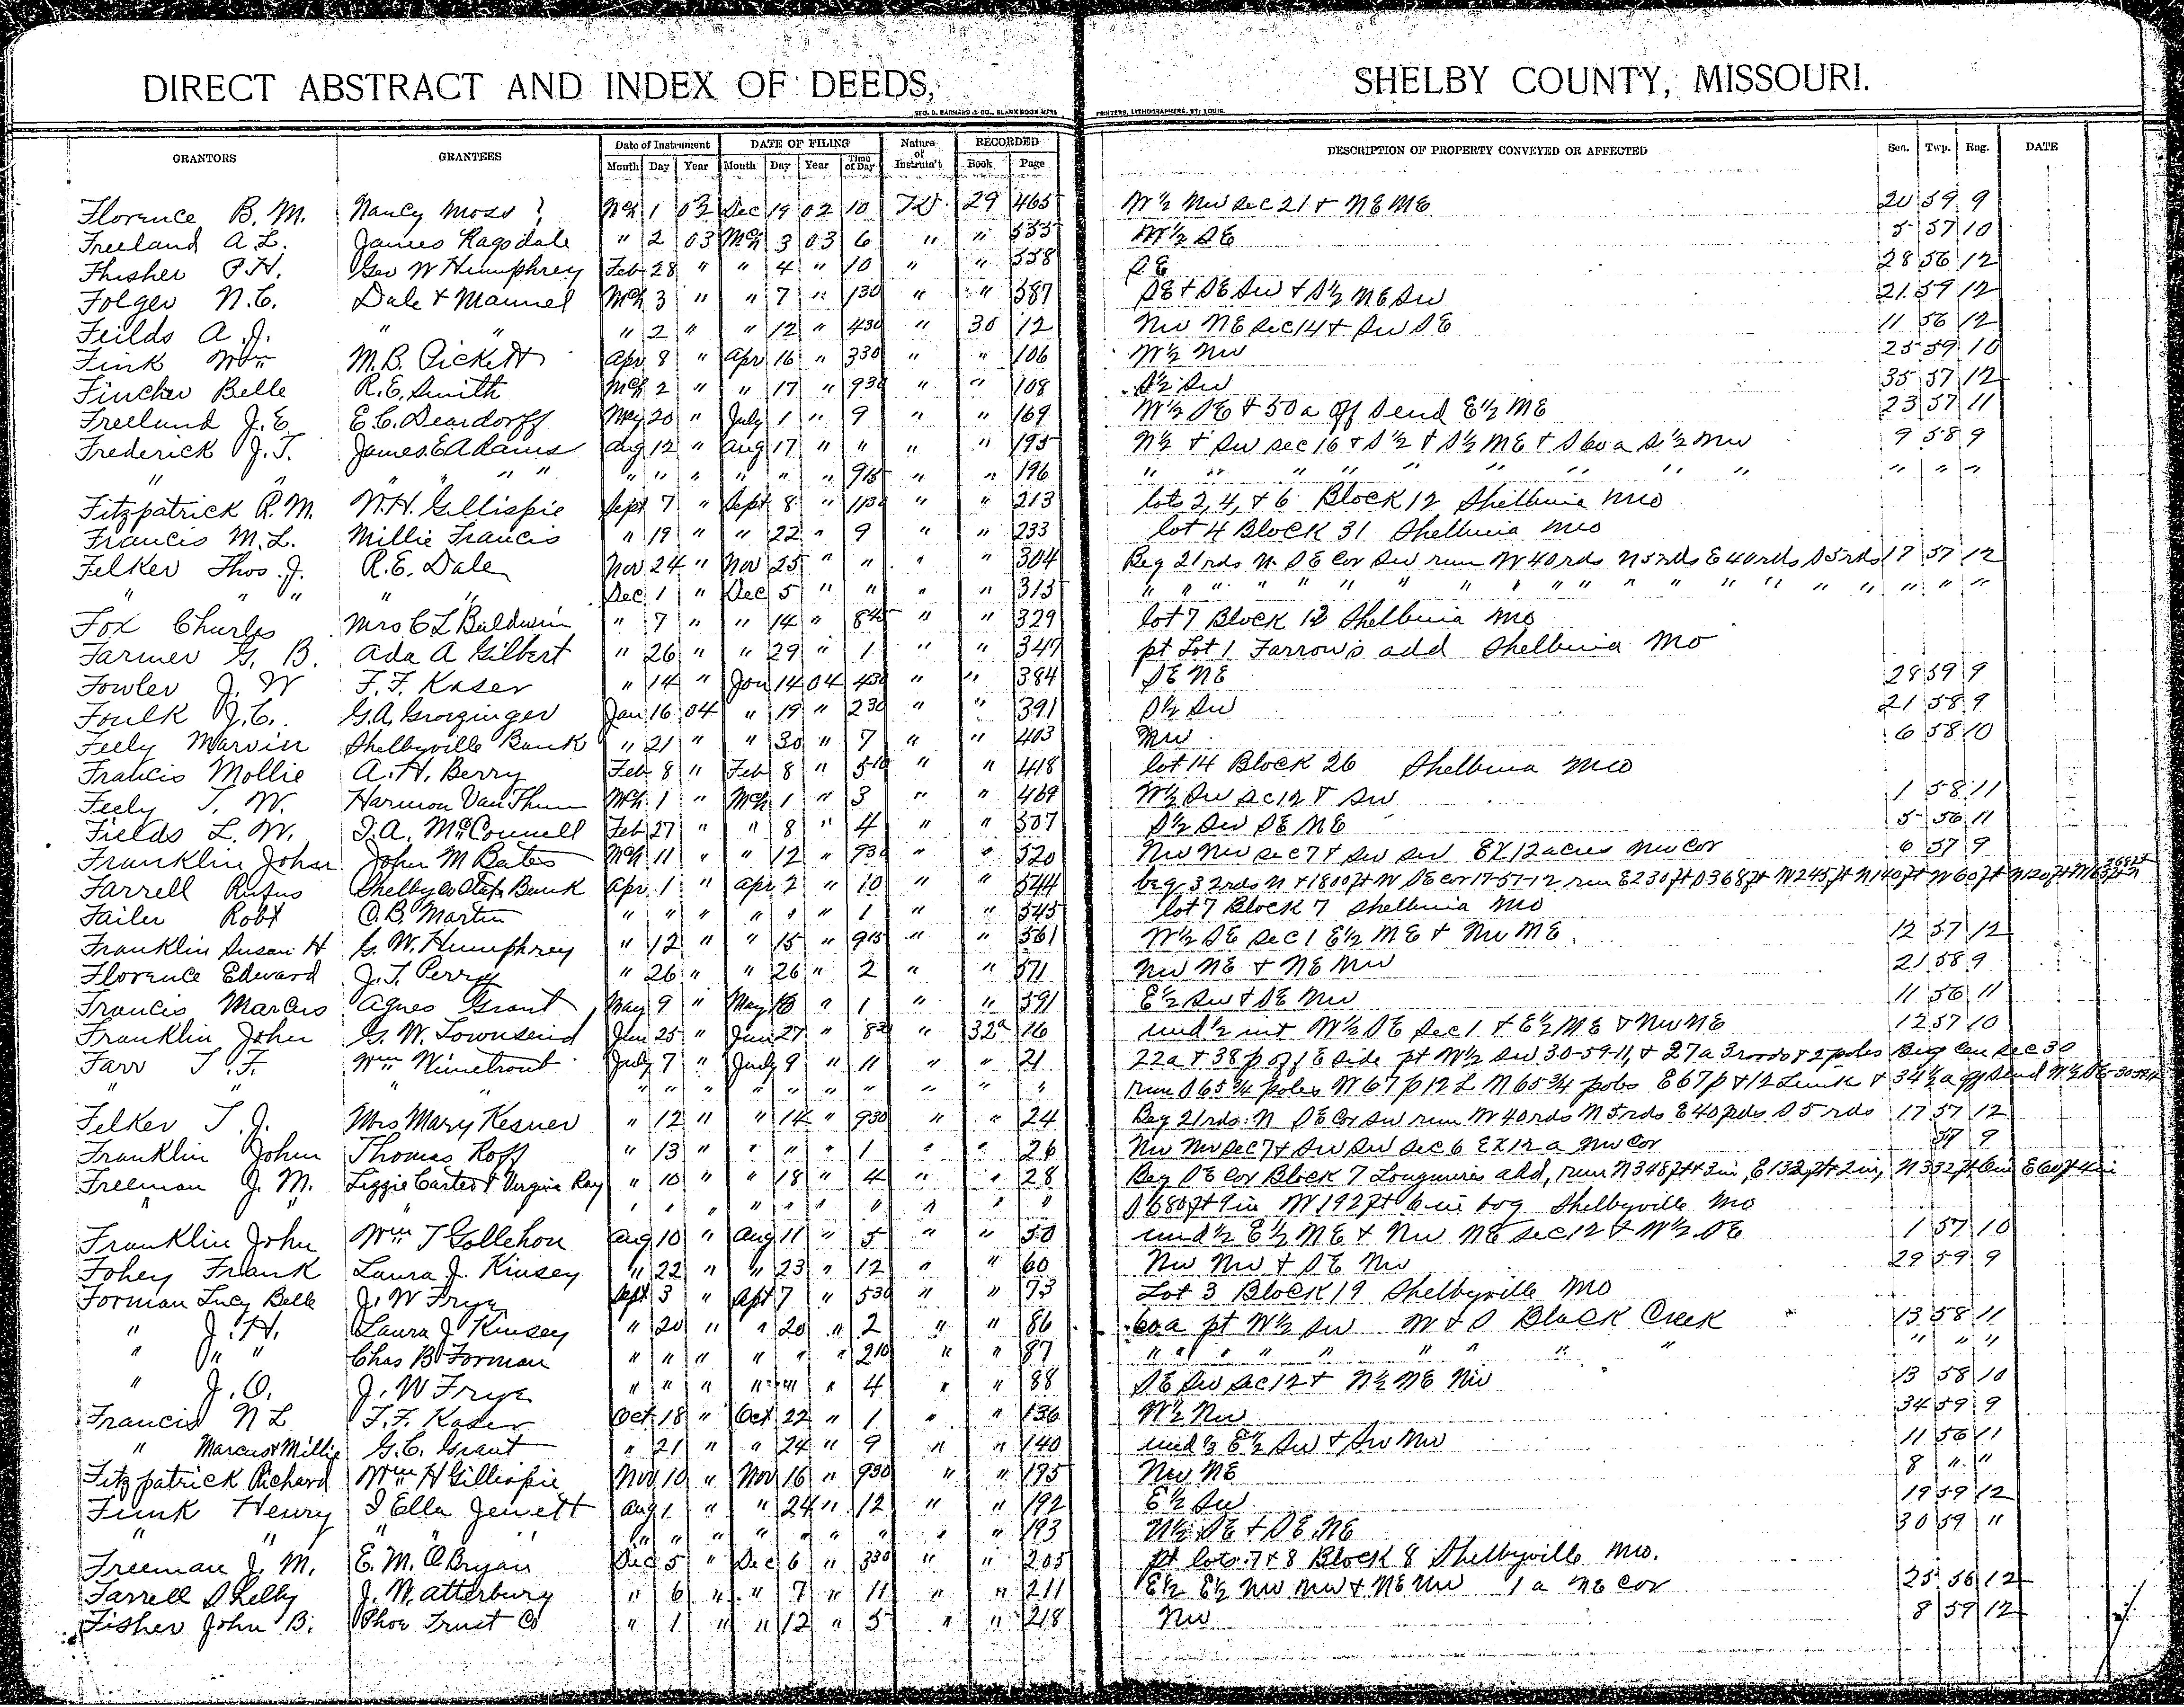 DIRECT ABSTRACT AND INDEX OF DEEDS, SHELBY COUNTY, MISSOURI.
GEO. D. BARNARD & CO., BLANK BOOK MFRS. PRINTERS, LITHOGRAPHERS, ST. LOUIS.
GRANTORS GRANTEES Date of Instrument DATE OF FILING Nature of Instrum't RECORDED DESCRIPTION OF PROPERTY CONVEYED OR AFFECTED Sec. Twp. Rng. DATE
Month Day Year Month Day Year Time of Day Book Page
Florence B. M. Nancy Moss ? 1 02 Dec 19 02 10 29 465 W½ Nw Sec 21 & NE NE 20 59 9
Freeland A. L. James Ragsdale " 2 03 Mch 3 03 6 " " 533 W½ SE 5 57 10
Fhisher P. H. Geo W Humphrey Feb 28 " " 4 " 10 " " 538 SE 28 56 12
Folger N. C. Dale & Mannel Mch 3 " " 7 " 130 " " 587 SE & SE Sw & S½ NE Sw 21 59 12
Feilds A. J. " " " 2 " " 12 " 430 " 30 12 Nw NE Sec 14 & Sw SE 11 56 12
Fink Wm M. B. Pickett Apr 8 " Apr 16 " 330 " " 106 W½ Nw 25 59 10
Fincher Belle R. E. Smith Mch 2 " " 17 " 930 " " 108 S½ Sw 35 57 12
Freeland J. E. E. C. Deardorff May 20 " July 1 " 9 " " 169 W½ SE & 50 a off S end E½ NE 23 57 11
Frederick J. T. James E Adams Aug 12 " Aug 17 " " " " 195 N½ & Sw Sec 16 & S½ & S½ NE & S 60 a S½ Nw 9 58 9
" " " " " " " " " " " 915 " " 196 " " " " " " " " " " " "
Fitzpatrick R. M. W. H. Gillispie Sept 7 " Sept 8 " 1130 " " 213 lots 2, 4, & 6 Block 12 Shelbina Mo
Francis M. L. Millie Francis " 19 " " 22 " 9 " " 233 lot 4 Block 31 Shelbina Mo
Felker Thos. J. R. E. Dale Nov 24 " Nov 25 " " " " 304 Beg 21 rds N SE Cor Sw run W 40 rds N 5 rds E 40 rds S 5 rds 17 57 12
" " " " " Dec 1 " Dec 5 " " " " 313 " " " " " " " " " " " " " " " " "
Fox Charles Mrs C L Baldwin " 7 " " 14 " 845 " " 329 lot 7 Block 12 Shelbina Mo
Farmer G. B. Ada A Gilbert " 26 " " 29 " 1 " " 347 pt Lot 1 Farrow's add Shelbina Mo
Fowler J. W F. F. Kaser " 14 " Jan 14 04 430 " " 384 SE NE 28 59 9
Foulk J. C. G. A. Grozinger Jan 16 04 " 19 " 230 " " 391 S½ Sw 21 58 9
Feely Marvin Shelbyville Bank " 21 " " 30 " 7 " " 403 Nw 6 58 10
Francis Mollie A. H. Berry Feb 8 " Feb 8 " 510 " " 418 lot 14 Block 26 Shelbina Mo
Feely T. W. Harmon Van Thun Mch 1 " Mch 1 " 3 " " 469 W½ Sw Sec 12 & Sw 1 58 11
Fields L. W. I. A. McConnell Feb 27 " " 8 " 4 " " 507 S½ Sw SE NE 5 56 11
Franklin John John M Bates Mch 11 " " 12 " 930 " " 520 Nw Nw Sec 7 & Sw Sw EX 12 acres Nw Cor 6 57 9
Farrell Rufus Shelby Co State Bank Apr 1 " Apr 2 " 10 " " 544 beg 32 rds N & 1800 ft W SE cor 17-57-12 run E 230 ft S 368 ft W 245 ft N 140 ft W 60 ft N 120 ft
Failer Robt O. B. Martin " " " " " " 1 " " 545 lot 7 Block 7 Shelbina Mo
Franklin Susan H G. W. Humphrey " 12 " " 15 " 915 " " 561 W½ SE Sec 1 E½ NE & Nw NE 12 57 12
Florence Edward J. T. Perry " 26 " " 26 " 2 " " 571 Nw NE & NE Nw 21 58 9
Francis Marcus Agnes Grant May 9 " May " 1 " " 591 E½ Sw & SE Nw 11 56 11
Franklin John G. W. Townsend Jun 25 " Jun 27 " 830 " 32 16 und ½ int W½ SE Sec 1 & E½ NE & Nw NE 12 57 10
Farr T. F. Wm Winetrout July 7 " July 9 " 11 " " 21 22 a & 38 p off E side pt W½ Sw 30-59-11, & 27 a 3 roods & 2 poles Beg Cen Sec 30
" " " " " " " " " " " " run S 65¾ poles W 67 p 12 L N 65¾ poles E 67 p & 12 Links & 34½ a off S end W½ SE
Felker T. J. Mrs Mary Kesner " 12 " " 14 " 930 " " 24 Beg 21 rds N SE Cor Sw run W 40 rds N 5 rds E 40 rds S 5 rds 17 57 12
Franklin John Thomas Roff " 13 " " " " 1 " " 26 Nw Nw Sec 7 & Sw Sw Sec 6 EX 12 a Nw Cor 57 9
Freeman J. M. Lizzie Carter & Virginia Ray " 10 " " 18 " 4 " " 28 Beg SE Cor Block 7 Longmires add, run N 348 ft & 3 in, E 132 ft 2 in, N 332 ft 6 in E 60 ft 4 in
" " " " " " " " " " " S 680 ft 9 in W 192 ft 6 in bog Shelbyville Mo
Franklin John Wm T Gollehon Aug 10 " Aug 11 " 5 " " 50 und ½ E½ NE & Nw NE Sec 12 & W½ SE 1 57 10
Fohey Frank Laura J. Kinsey " 22 " " 23 " 12 " " 60 Nw Nw & SE Nw 29 59 9
Forman Lucy Belle J. W Frye Sept 3 " Sept 7 " 530 " " 73 Lot 3 Block 19 Shelbyville Mo
" J. H. Laura J Kinsey " 20 " " 20 " 2 " " 86 60 a pt W½ Sw W & S Black Creek 13 58 11
" " " Chas B Forman " " " " " " 210 " " 87 " " " " " " " " " " " "
" J. O. J. W Frye " " " " " " 4 " " 88 SE Sw Sec 12 & N½ NE Nw 13 58 10
Francis N L F. F. Kaser Oct 18 " Oct 22 " 1 " " 136 W½ Nw 34 59 9
" Marcus & Millie G. C. Grant " 21 " " 24 " 9 " " 140 und ⅓ E½ Sw & Sw Nw 11 56 11
Fitzpatrick Richard Wm H Gillispie Nov 10 " Nov 16 " 930 " " 175 Nw NE 8 " "
Funk Henry I Ella Jewett Aug 1 " " 24 " 12 " " 192 E½ Sw 19 59 12
" " " " " " " " " " " " " 193 N½ SE & SE NE 30 59 "
Freeman J. M. E. M. O Bryan Dec 5 " Dec 6 " 330 " " 205 pt lots 7 & 8 Block 8 Shelbyville Mo.
Farrell Shelby J. W. Atterbury " 6 " " 7 " 11 " " 211 E½ E½ Nw Nw & NE Nw 1 a NE Cor 25 56 12
Fisher John B. Phoe Trust Co " 1 " " 12 " 5 " " 218 Nw 8 59 12